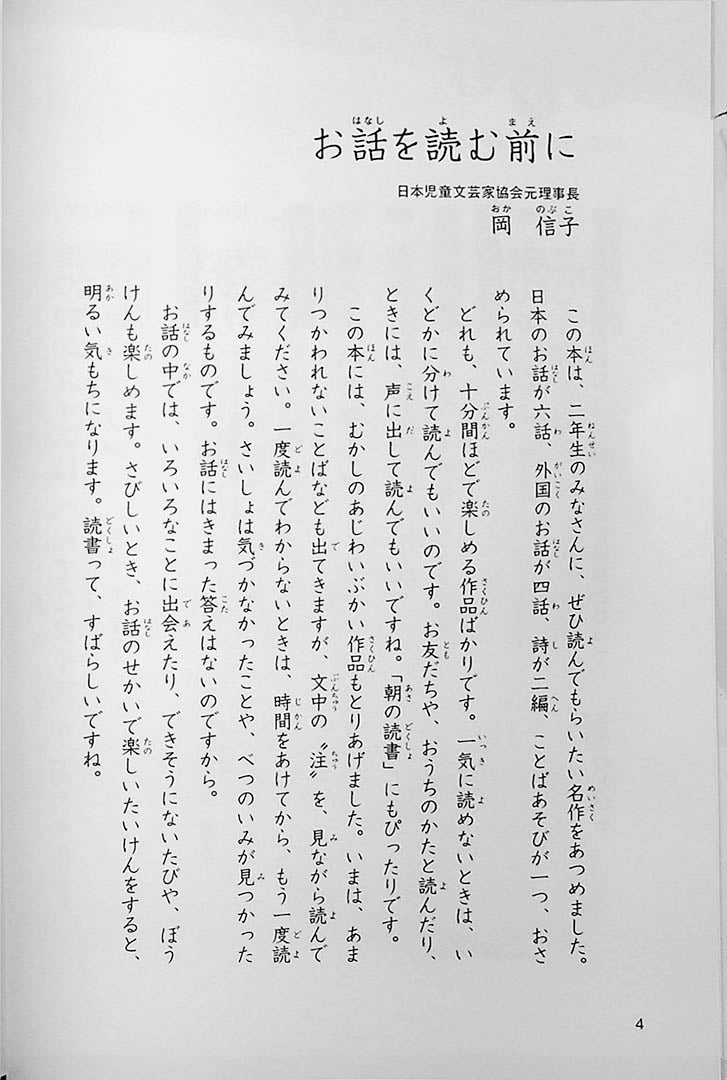 お話を読む前に
日本児童文芸家協会元理事長
岡 信子
この本は、二年生のみなさんに、ぜひ読んでもらいたい名作をあつめました。
日本のお話が六話、外国のお話が四話、詩が二編、ことばあそびが一つ、おさ
められています。
どれも、十分間ほどで楽しめる作品ばかりです。一気に読めないときは、い
くどかに分けて読んでもいいのです。お友だちや、おうちのかたと読んだり、
ときには、声に出して読んでもいいですね。「朝の読書」にもぴったりです。
この本には、むかしのあじわいぶかい作品もとりあげました。いまは、あま
りつかわれないことばなども出てきますが、文中の〝注〟を、見ながら読んで
みてください。一度読んでわからないときは、時間をあけてから、もう一度読
んでみましょう。さいしょは気づかなかったことや、べつのいみが見つかった
りするものです。お話にはきまった答えはないのですから。
お話の中では、いろいろなことに出会えたり、できそうにないたびや、ぼう
けんも楽しめます。さびしいとき、お話のせかいで楽しいたいけんをすると、
明るい気もちになります。読書って、すばらしいですね。
4